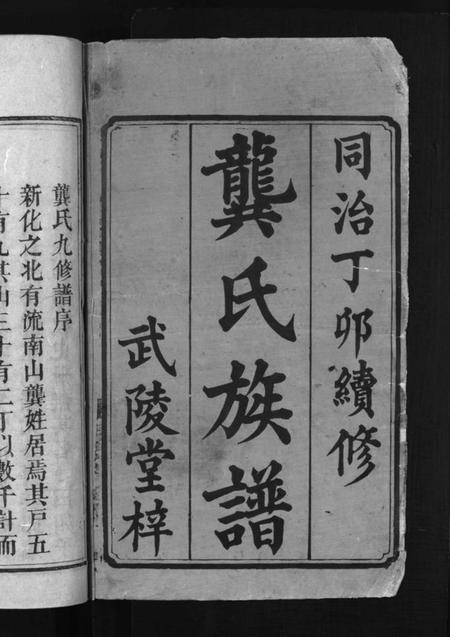 同治丁卯續修
龔氏族譜
武陵堂梓
龔氏九修譜序
新化之北有流南山龔姓居焉其戶五
十有九其山三十有二丁以數千計而